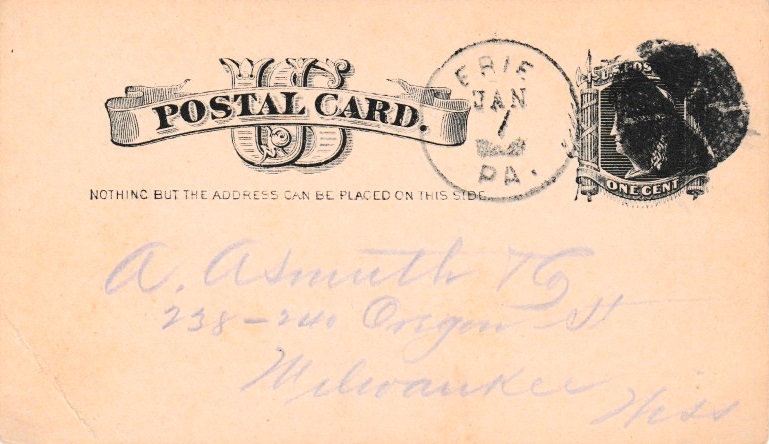 POSTAL CARD.
ERIE
JAN
7
PA.
U.S. POS
ONE CENT
NOTHING BUT THE ADDRESS CAN BE PLACED ON THIS SIDE.
A. Asmuth & Co
238-240 Oregon St
Milwaukee
Wiss